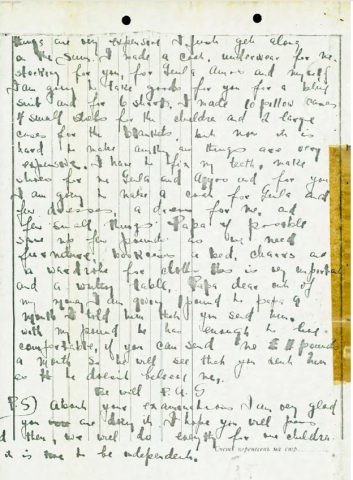 things are very expensive I just get along
on the sum. I made a coat, underwear for me
stocking for you, for Geula and myself
I am going to take goods for you for a blue
suit and for 6 shorts, I made 10 pillow cases
small for the children and 2 large
cases for the blankets, but now it is
hard to make as things are very
expensive. I have to fix my teeth, make
shoes for me Geula and and for you
I am going to make a coat for Geula and
few dresses a dress for me, and
few small things. Papa if possible
send up few pounds as we need
furniture, a bed, chairs and
a wardrobe for clothes this is very important
and a writing table, Papa dear out of
my money I am giving 1 pound to papa a
month I told him that you send him.
with my pound he has enough to live
comfortable, if you can send me pounds
a month so he will see that you sent him
as he doesn't believe me.
P.S) About your examinations I am very glad
you are doing it I hope you will pass
then, we will do everything for our children
it is time to be independent.